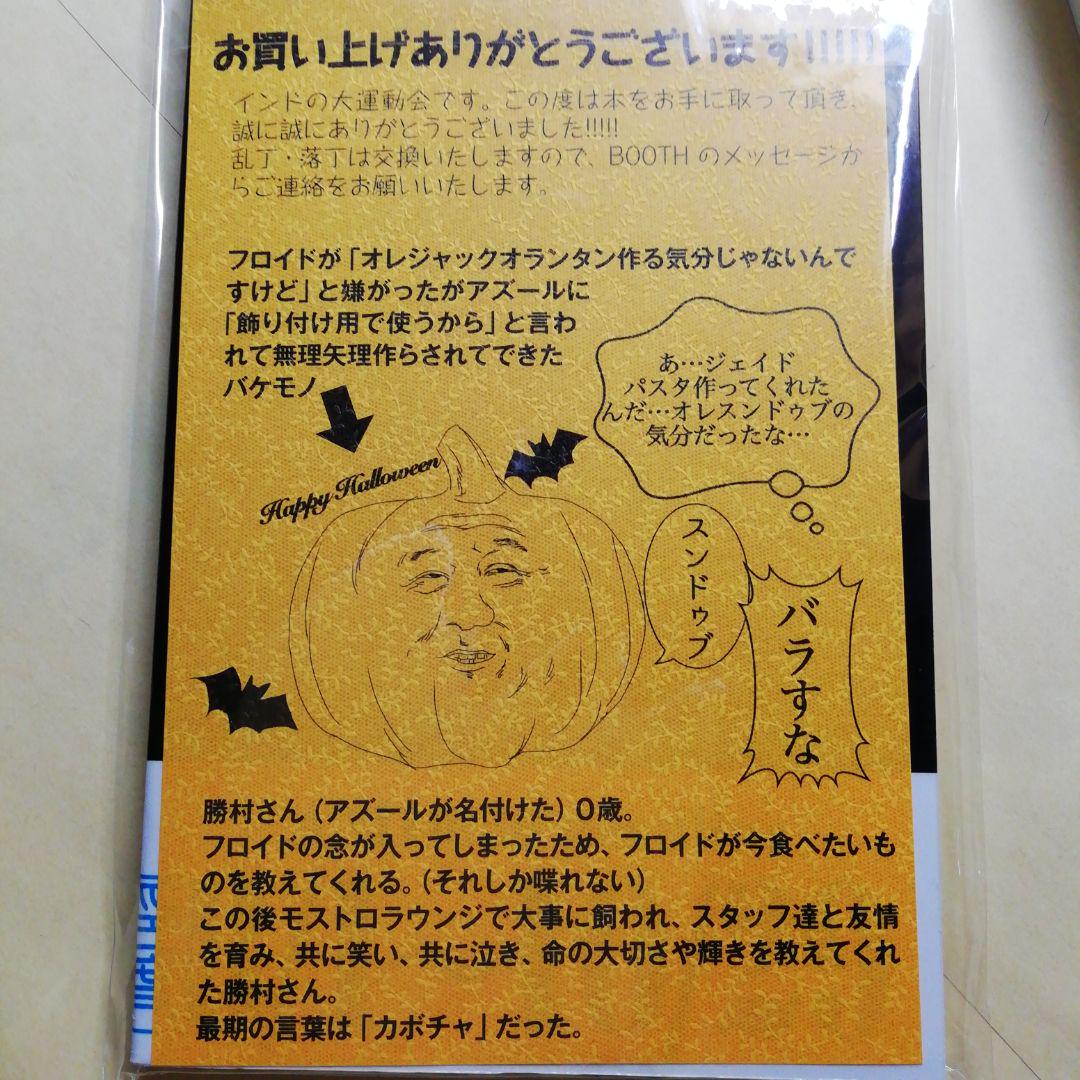 お買い上げありがとうございます!!!!!
インドの大運動会です。この度は本をお手に取って頂き、
誠に誠にありがとうございました!!!!!
乱丁・落丁は交換いたしますので、BOOTHのメッセージか
らご連絡をお願いいたします。
フロイドが「オレジャックオランタン作る気分じゃないんで
すけど」と嫌がったがアズールに
「飾り付け用で使うから」と言わ
れて無理矢理作らされてできた
バケモノ
あ…ジェイド
パスタ作ってくれた
んだ…オレスンドゥブの
気分だったな…
Happy Halloween
スンドゥブ
バラすな
勝村さん(アズールが名付けた)0歳。
フロイドの念が入ってしまったため、フロイドが今食べたいも
のを教えてくれる。(それしか喋れない)
この後モストロラウンジで大事に飼われ、スタッフ達と友情
を育み、共に笑い、共に泣き、命の大切さや輝きを教えてくれ
た勝村さん。
最期の言葉は「カボチャ」だった。